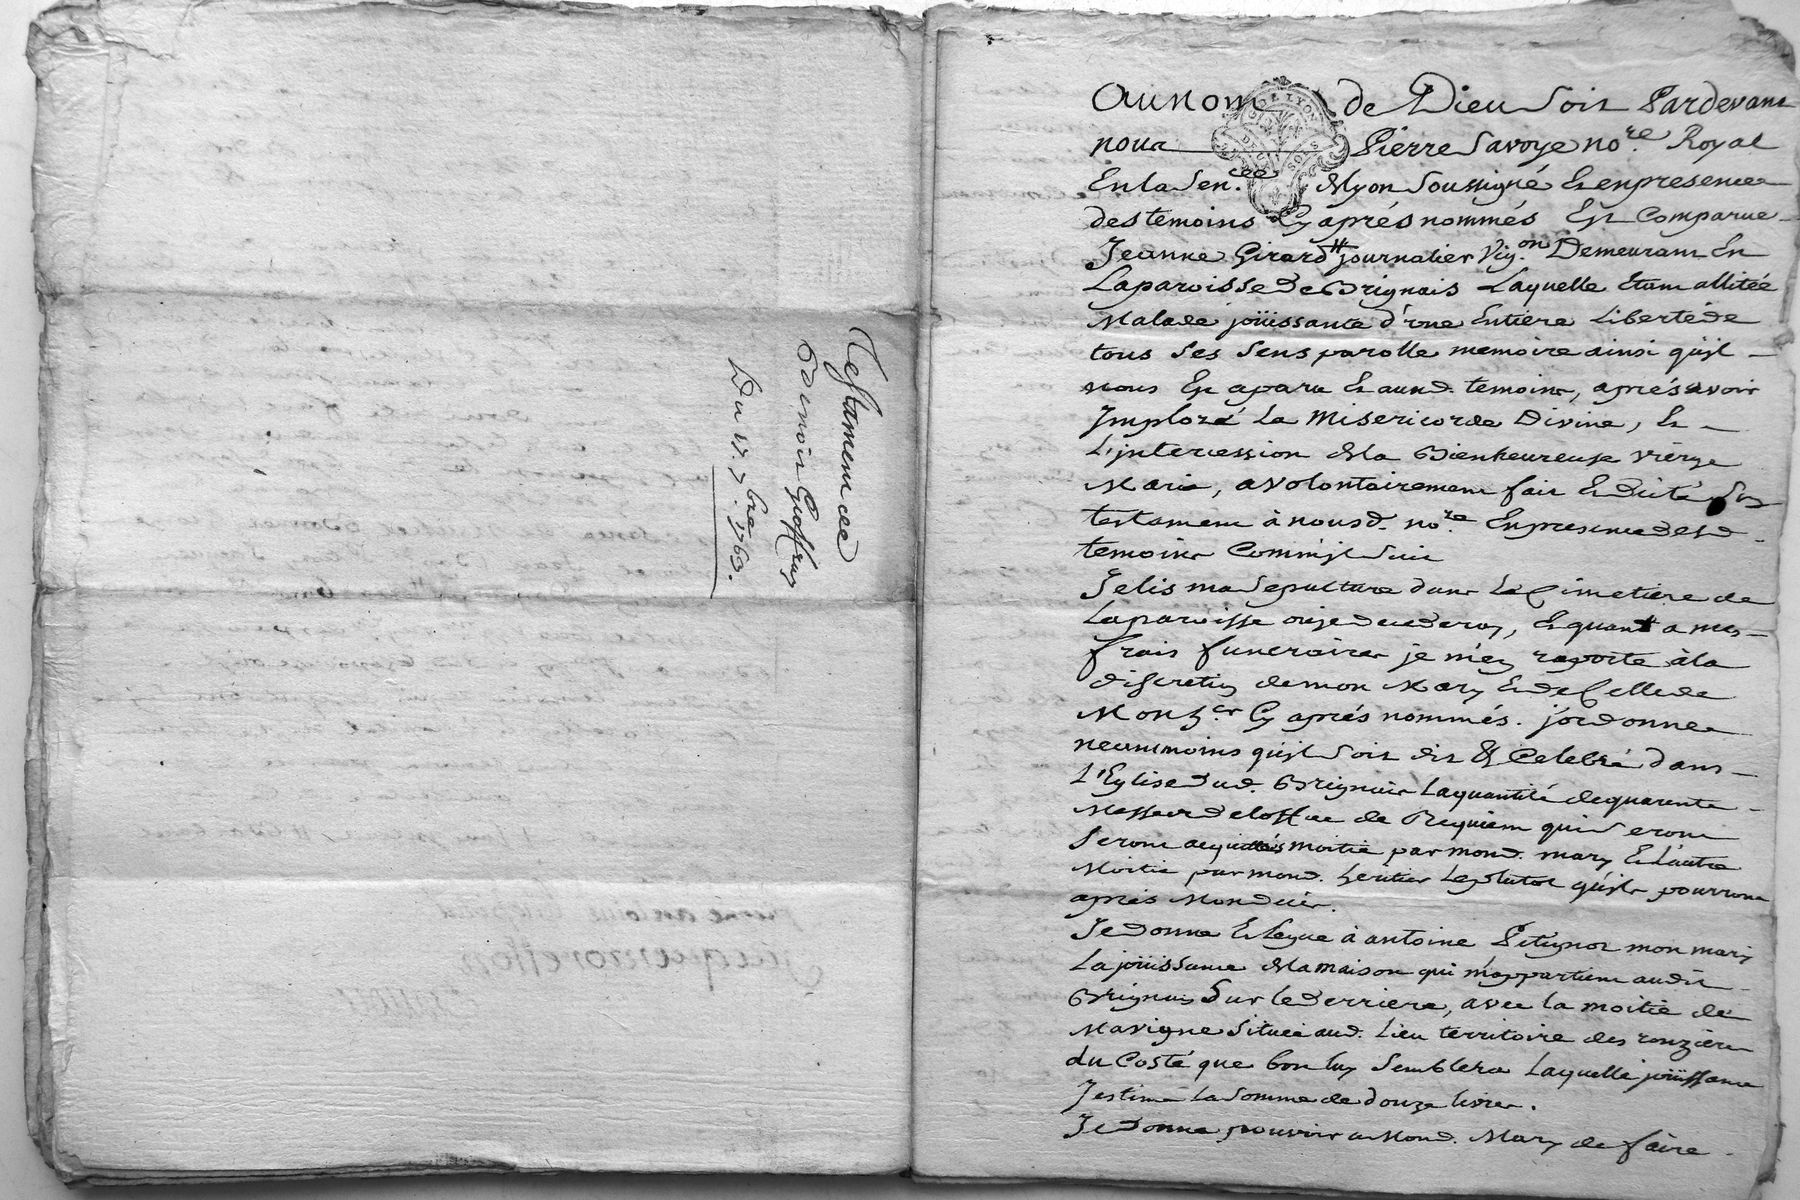 Testament de
Benoit Geoffray
Du 17. 7.bre 1763.
Au nom de Dieu soit Pardevant
nous Pierre Savoye no.re Royal
En la Sen.cée de Lyon soussigné Et en presence
des temoins Cy aprés nommés Est Comparue
Jeanne Girard # journalier Vig.on Demeurant En
La paroisse de Brignais Laquelle Etant allitée
Malade joüissante d'une Entiere Liberté de
tous ses sens parolle memoire ainsi qu'jl
nous Est aparu Et aux d. temoins, aprés avoir
Jmploré La Misericorde Divine, Et
L'jntercession de la Bienheureuse vierge
Marie, a volontairement fait Et dicté son
testament à nous d. no.re En presence desd.
temoins Comm'jl suit
J'elis ma sepulture dans Le Cimetiere de
La paroisse ou je decederay, Et quant a mes
frais funeraires je m'en raporte à la
discretion de mon Mary Et de Celle de
Mon h.er Cy aprés nommés. j'ordonne
neanmoins qu'jl soit dit & Celebré dans
L'Eglise dud. Brignais La quantité de quarante
Messes de loffice de Requiem qui seront
seront acquittés moitié par mond. mary Et L'autre
Moitié par mond. heritier Le plutot qu'jls pourront
aprés Mon decés.
Je donne Et Legue à antoine Petugnot mon mary
La joüissance de la maison qui m'appartient audit
Brignais sur le derriere, avec la moitié de
Ma vigne située aud. Lieu territoire des ronzieres
du Costé que bon luy semblera Laquelle joüissance
J'estime La somme de douze livres.
Je donne pouvoir a Mond. Mary de faire